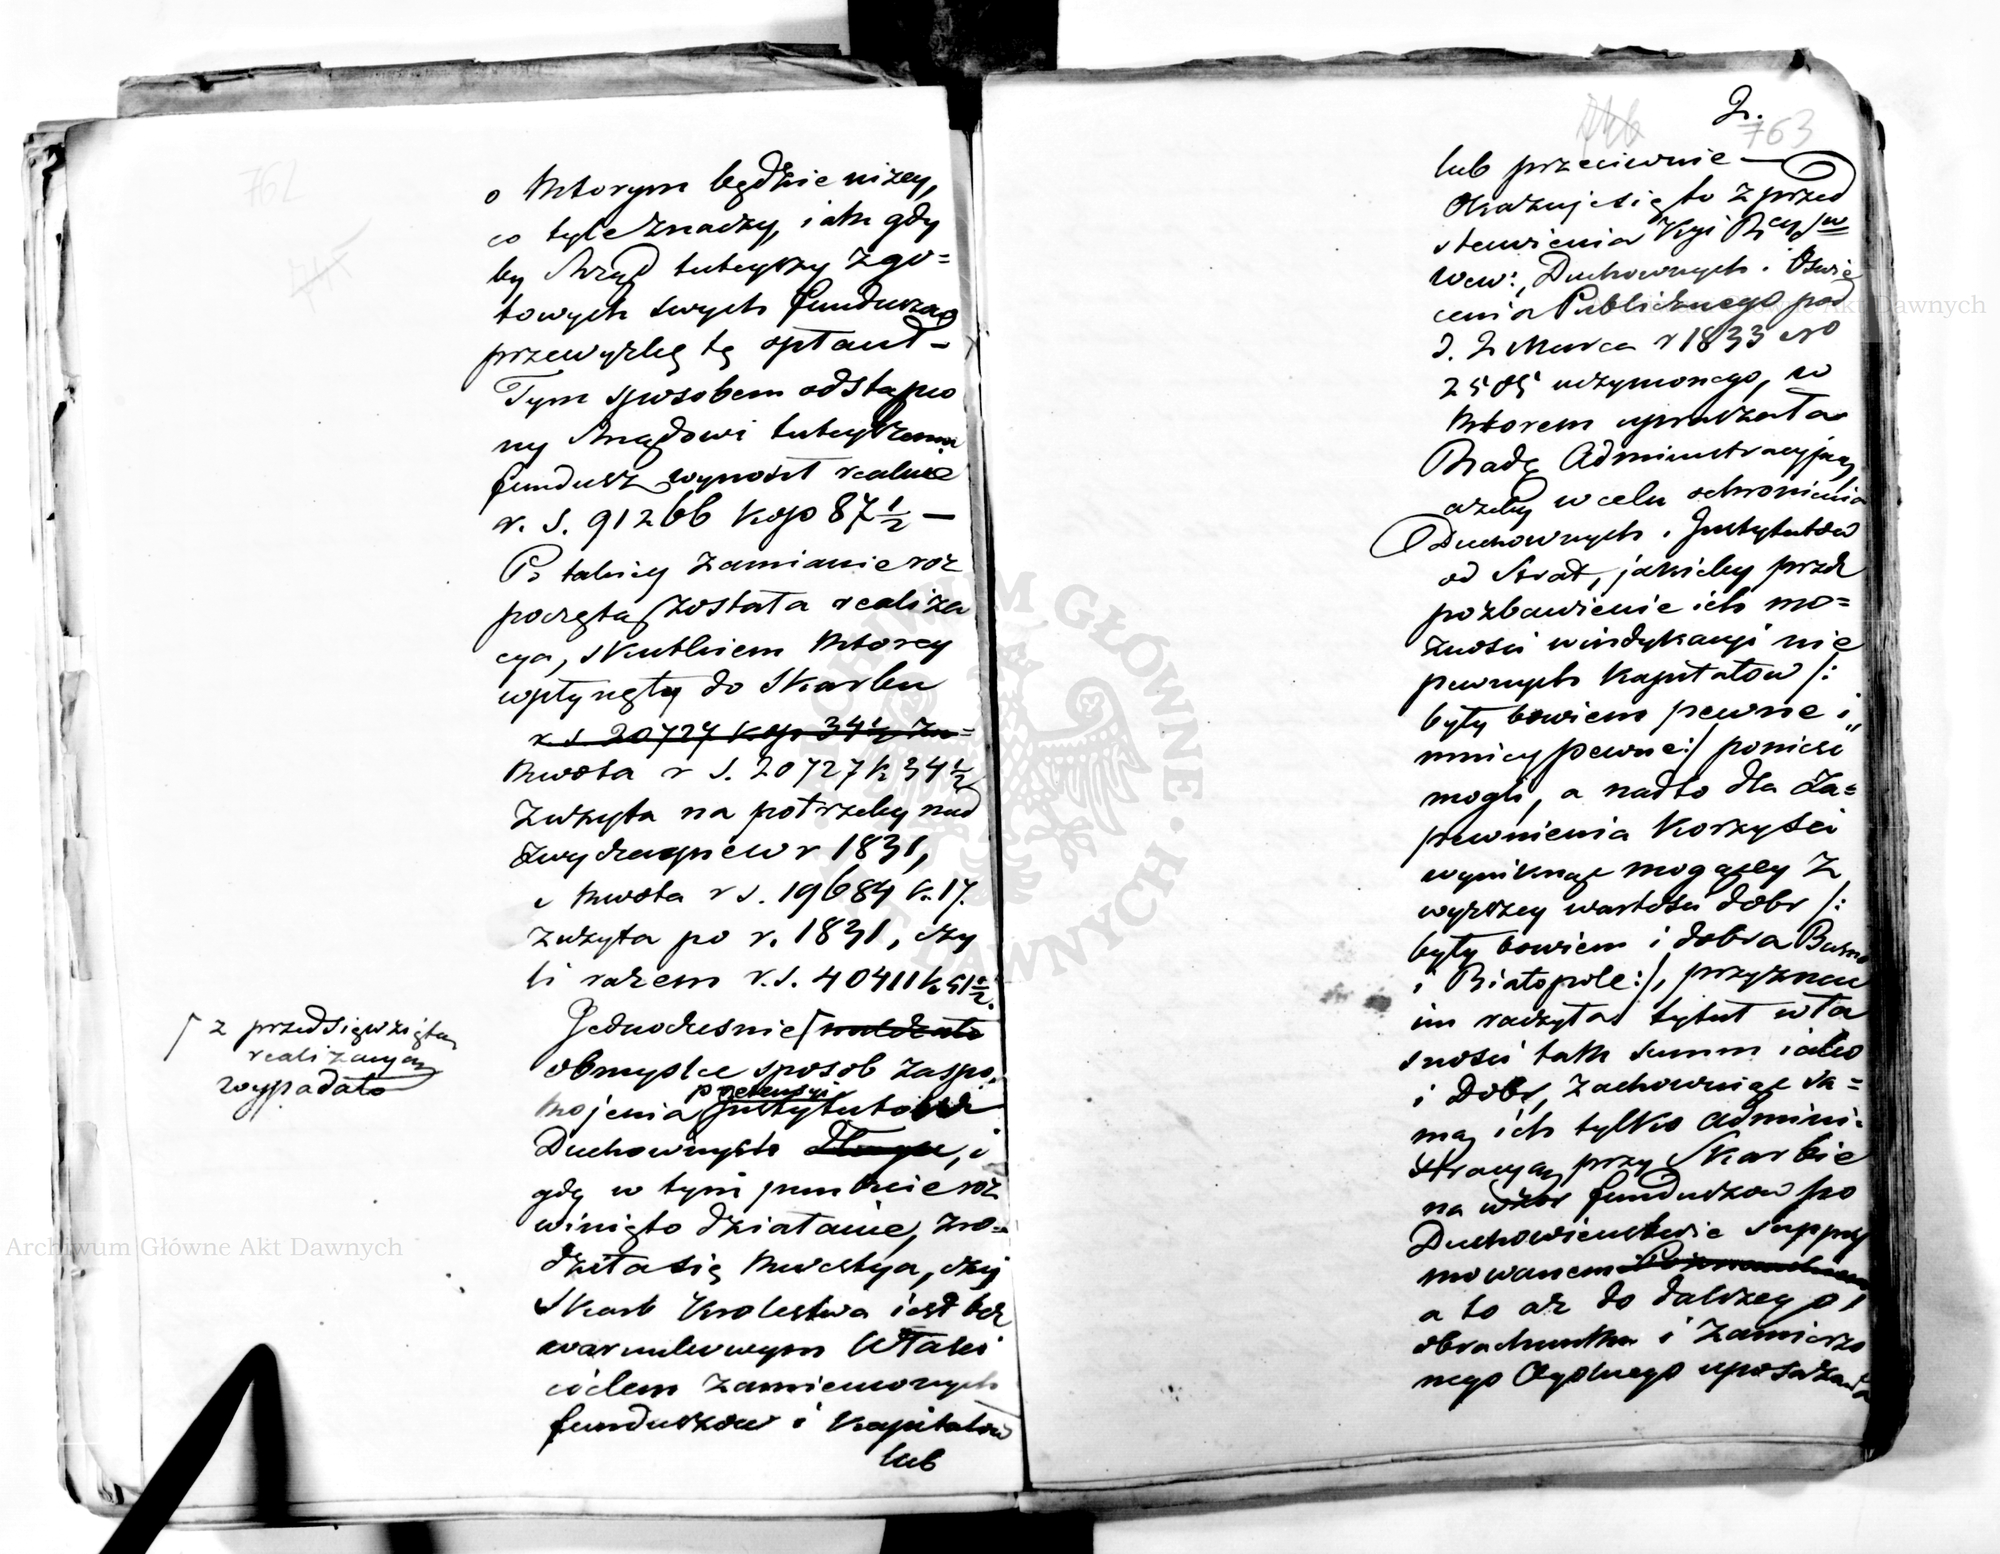 762
o ktorym będzie niżey,
co tyle znaczy, iak gdy
by Rząd tuteyszy z go=
towych swych funduszów
przewyżkę tę opłacał —
Tym sposobem odstąpio
ny Rządowi tuteyszemu
fundusz wynosił realnie
r. s. 91266 kop 87½ —
Po takiey zamianie roz
poczętą została realiza
cya, skutkiem ktorey
wpłynęły do Skarbu
r. s. 20727 kop 34½ Zu=
kwota r s. 20727 k 34½
zużyta na potrzeby nad
zwyczayne w r 1831,
i kwota r s. 19684 k. 17.
zużyta po r. 1831, czy
li razem r. s. 40411 k 51½.
Jednocześnie ⌈
⌈ z przedsięwziętą
realizacyą
wypadało
obmyslić sposob zaspo
kojenia pretensyi Jnstytutow
Duchownych długu, i
gdy w tym punkcie roz
winięto działanie, zro=
dziła się kwestya, czy
Skarb Krolestwa iest bez
warunkowym Właści
cielem zamienionych
funduszow i Kapitałow
lub
2.
746
763
lub przeciwnie —
Okazuje się to z przed
stawienia Kyi Rząd w
Wew:, Duchownych i Oswie
cenia Publicznego pod
d. 2 Marca r 1833 No
2505 uczynionego, w
ktorem upraszała
Radę Administracyjną
ażeby w celu ochronienia
Duchownych i Jnstytutów
od strat, jakieby przez
pozbawienie ich mo=
żności windykacyi nie
pewnych kapitałow /:
były bowiem pewne i
mniey pewne:/ ponieść
mogli, a nadto dla za=
pewnienia korzyści
wyniknąć mogącey z
wyższey wartości dobr /:
były bowiem i dobra Busno
i Białopole:/, przyznać
im raczyła tytuł wła
sności tak summ iako
i Dobr, zachowując sa=
mą ich tylko admini=
stracyą przy Skarbie
na wzór funduszow po
Duchowieństwie suppry
mowanem
a to aż do dalszego
obrachunku i zamierzo
nego Ogolnego uposażenia